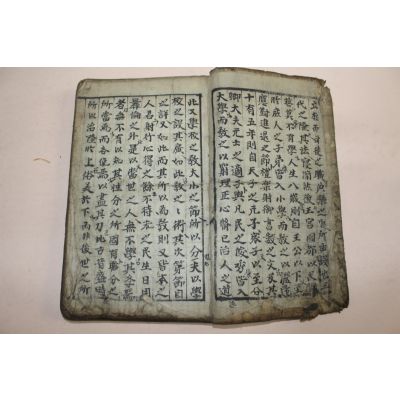 立極而司徒之職典樂之官所由設也三
代之隆其法寖備然後王宮國都以及閭
巷莫不有學人生八歲則自王公以下至
於庶人之子弟皆入小學而敎之以灑掃
應對進退之節禮樂射御書數之文及其
十有五年則自天子之元子衆子以至公
卿大夫元士之適子與凡民之俊秀皆入
大學而敎之以窮理正心脩己治人之道
此又學校之敎大小之節所以分夫以學
校之設其廣如此敎之之術其次第節目
之詳又如此而其所以爲敎則又皆本之
人君躬行心得之餘不待求之民生日用
彛倫之外是以當世之人無不學其學焉
者無不有以知其性分之所固有職分之
所當爲而各俛焉以盡其力此古昔盛時
所以治隆於上俗美於下而非後世之所